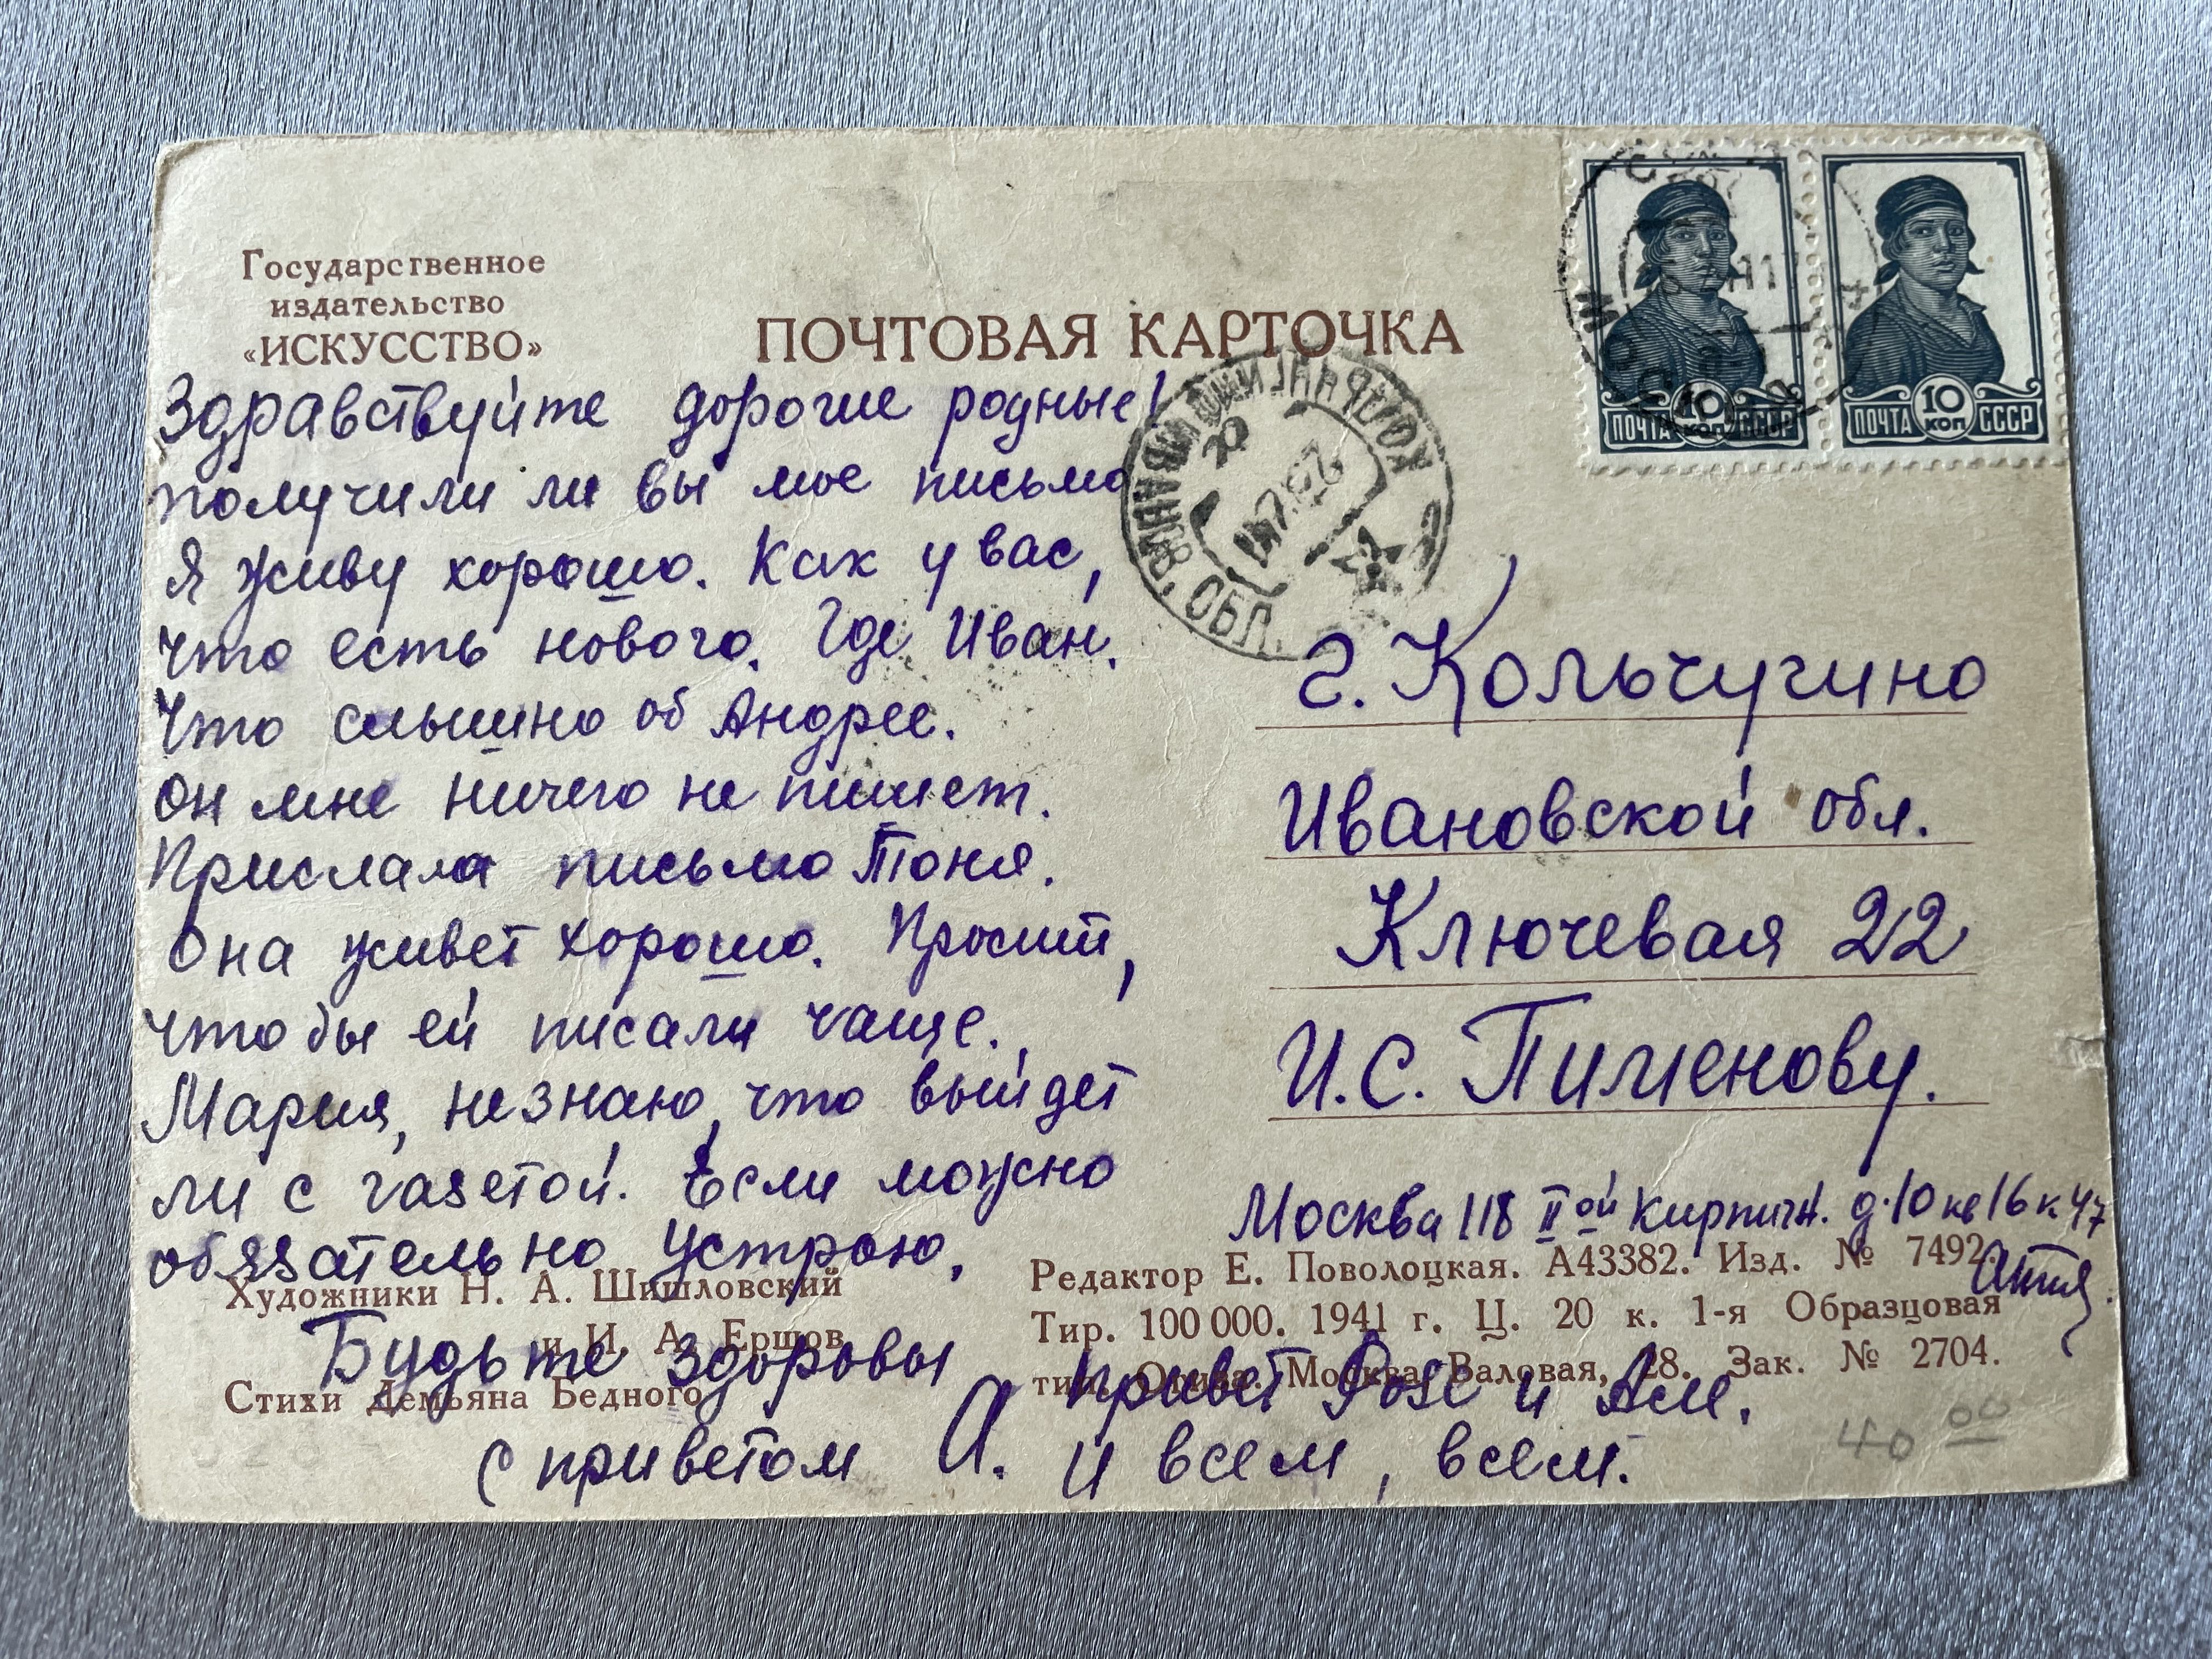 Государственное
издательство
«ИСКУССТВО»
ПОЧТОВАЯ КАРТОЧКА
ПОЧТА 10 КОП СССР
ПОЧТА 10 КОП СССР
ОБЛ.
Здравствуйте дорогие родные!
получили ли вы мое письмо
Я живу хорошо. Как у вас,
что есть нового. Где Иван.
Что слышно об Андрее.
Он мне ничего не пишет.
Прислала письмо Тоня.
Она живет хорошо. Просит,
чтобы ей писали чаще.
Мария, не знаю, что выйдет
ли с газетой. Если можно
обязательно устрою.
Будьте здоровы
с приветом А.
Привет Розе и Але.
и всем, всем.
г. Кольчугино
Ивановской обл.
Ключевая 22
И.С. Пименову.
Москва 118 II ой Кирпичн. д.10 кв 16 к 47
Художники Н. А. Шишловский
и И. А. Ершов
Стихи Демьяна Бедного
Редактор Е. Поволоцкая. А43382. Изд. № 7492
Тир. 100 000. 1941 г. Ц. 20 к. 1-я Образцовая
тип. Огиза. Москва, Валовая, 28. Зак. № 2704.
40 00